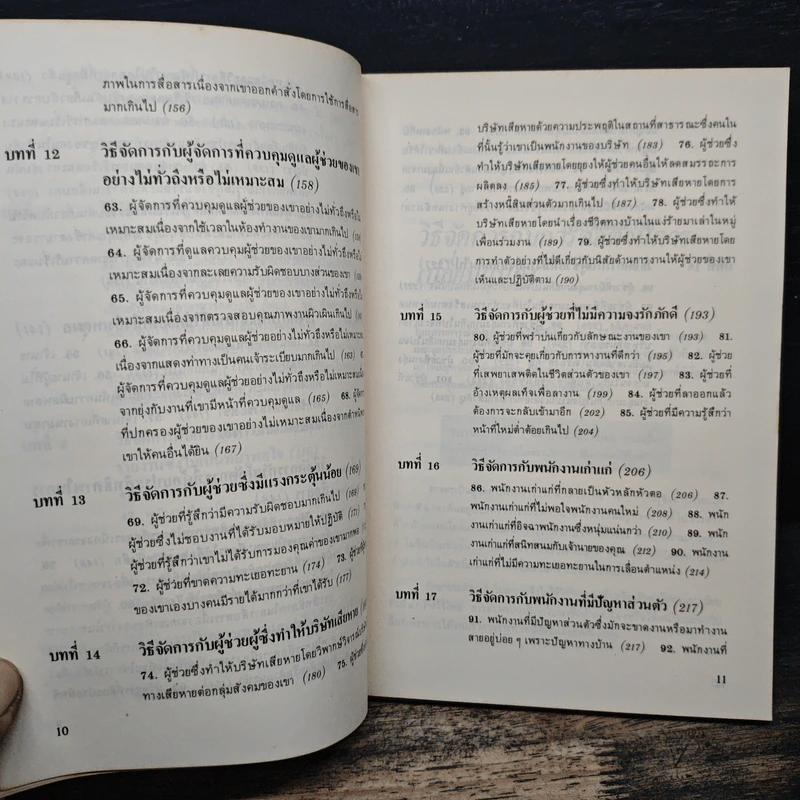 ภาพในการสื่อสารเนื่องจากเขาออกคำสั่งโดยการใช้การสื่อสาร
มากเกินไป (156)
บทที่ 12 วิธีจัดการกับผู้จัดการที่ควบคุมดูแลผู้ช่วยของเขา
อย่างไม่ทั่วถึงหรือไม่เหมาะสม (158)
63. ผู้จัดการที่ควบคุมดูแลผู้ช่วยของเขาอย่างไม่ทั่วถึงหรือไม่
เหมาะสมเนื่องจากใช้เวลาในห้องทำงานของเขามากเกินไป
64. ผู้จัดการที่ดูแลควบคุมผู้ช่วยของเขาอย่างไม่ทั่วถึงหรือไม่
เหมาะสมเนื่องจากละเลยความรับผิดชอบบางส่วนของเขา
65. ผู้จัดการที่ควบคุมดูแลผู้ช่วยของเขาอย่างไม่ทั่วถึงหรือไม่
เหมาะสมเนื่องจากตรวจสอบคุณภาพงานผิวเผินเกินไป
66. ผู้จัดการที่ควบคุมดูแลผู้ช่วยของเขาอย่างไม่ทั่วถึงหรือไม่เหมาะสม
เนื่องจากแสดงท่าทางเป็นคนเจ้าระเบียบมากเกินไป (163)
ผู้จัดการที่ควบคุมดูแลผู้ช่วยอย่างไม่ทั่วถึงหรือไม่เหมาะสมเนื่อง
จากยุ่งกับงานที่เขามีหน้าที่ควบคุมดูแล (165) 68.
ที่ปกครองผู้ช่วยของเขาอย่างไม่เหมาะสมเนื่องจากตำหนิ
เขาให้คนอื่นได้ยิน (167)
บทที่ 13 วิธีจัดการกับผู้ช่วยซึ่งมีแรงกระตุ้นน้อย (169)
69. ผู้ช่วยที่รู้สึกว่ามีความรับผิดชอบมากเกินไป (169)
ผู้ช่วยซึ่งไม่ชอบงานที่ได้รับมอบหมายให้ปฏิบัติ (171)
ผู้ช่วยที่รู้สึกว่าเขาไม่ได้รับการมองคุณค่าของเขามากพอ
72. ผู้ช่วยที่ขาดความทะเยอทะยาน (174) 73.
ของเขาเองบางคนมีรายได้มากกว่าที่เขาได้รับ (177)
บทที่ 14 วิธีจัดการกับผู้ช่วยผู้ซึ่งทำให้บริษัทเสียหาย
74. ผู้ช่วยซึ่งทำให้บริษัทเสียหายโดยวิพากษ์วิจารณ์
ทางเสียหายต่อกลุ่มสังคมของเขา (180) 75.
10
บริษัทเสียหายด้วยความประพฤติในสถานที่สาธารณะซึ่งคนใน
ที่นั้นรู้ว่าเขาเป็นพนักงานของบริษัท (183) 76. ผู้ช่วยซึ่ง
ทำให้บริษัทเสียหายโดยยุยงให้ผู้ช่วยคนอื่นให้ลดสมรรถะการ
ผลิตลง (185) 77. ผู้ช่วยซึ่งทำให้บริษัทเสียหายโดยการ
สร้างหนี้สินส่วนตัวมากเกินไป (187) 78. ผู้ช่วยซึ่งทำให้
บริษัทเสียหายโดยนำเรื่องชีวิตทางบ้านในแง่ร้ายมาเล่าในหมู่
เพื่อนร่วมงาน (189) 79. ผู้ช่วยซึ่งทำให้บริษัทเสียหายโดย
การทำตัวอย่างที่ไม่ดีเกี่ยวกับนิสัยด้านการงานให้ผู้ช่วยของเขา
เห็นและปฏิบัติตาม (190)
บทที่ 15 วิธีจัดการกับผู้ช่วยที่ไม่มีความจงรักภักดี (193)
80. ผู้ช่วยที่พร่ำบ่นเกี่ยวกับลักษณะงานของเขา (193) 81.
ผู้ช่วยที่มักจะคุยเกี่ยวกับการหางานที่ดีกว่า (195) 82. ผู้ช่วย
ที่เสพยาเสพติดในชีวิตส่วนตัวของเขา (197) 83. ผู้ช่วยที่
อ้างเหตุผลเท็จเพื่อลางาน (199) 84. ผู้ช่วยที่ลาออกแล้ว
ต้องการจะกลับเข้ามาอีก (202) 85. ผู้ช่วยที่มีความรู้สึกว่า
หน้าที่ใหม่ต่ำต้อยเกินไป (204)
บทที่ 16 วิธีจัดการกับพนักงานเก่าแก่ (206)
86. พนักงานเก่าแก่ที่กลายเป็นหัวหลักหัวตอ (206) 87.
พนักงานเก่าแก่ที่ไม่พอใจพนักงานคนใหม่ (208) 88. พนัก
งานเก่าแก่ที่อิจฉาพนักงานซึ่งหนุ่มแน่นกว่า (210) 89. พนัก
งานเก่าแก่ที่สนิทสนมกับเจ้านายของคุณ (212) 90. พนักงาน
เก่าแก่ที่ไม่มีความทะเยอทะยานในการเลื่อนตำแหน่ง (214)
บทที่ 17 วิธีจัดการกับพนักงานที่มีปัญหาส่วนตัว (217)
91. พนักงานที่มีปัญหาส่วนตัวซึ่งมักจะขาดงานหรือมาทำงาน
สายอยู่บ่อย ๆ เพราะปัญหาทางบ้าน (217) 92. พนักงานที่
11